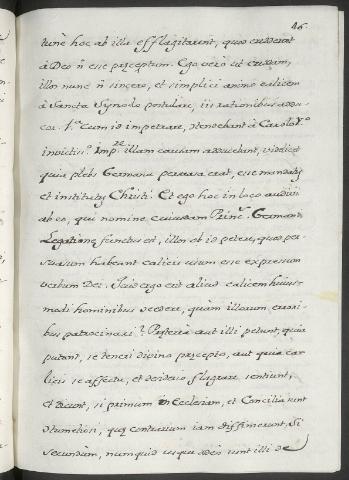 46
tunè hoc ab illis efflagitarunt, quos crederent
à Deo ñ esse præceptum. Ego verò ut credam,
illos nunc ñ sincero, et simplici animo calicem
à Sancta Synodo postulare, iis rationibus addu-
cor. 1.ª Cum id impetrare, contendebant à Carolo V.º
invictiss.º Imp.re illam causam adducebant, videlicet
quia plebs Germana persuasa erat, esse mandatis
et institutis Christi. Et ego hoc in loco audivi
ab eo, qui nomine cuiusdam Princ. Germani
Legatione functus est, illos et id petere, quos per-
suasum habeant calicis usum esse expressum
verbum Dei. Quid ergo est aliud calicem huius-
modi hominibus cedere, quàm illorum errori-
bus patrocinari? Præterea aut illi petunt, quia
putant, se teneri divino præcepto, aut quia ca-
licis se affectu, et desiderio flagrare sentiunt,
et dicunt, si primum in Ecclesiam, et Concilia sunt
contumeliosi, quæ contrarium iam diffinierunt. Si
secundum, numquid usque adeò sunt illi de